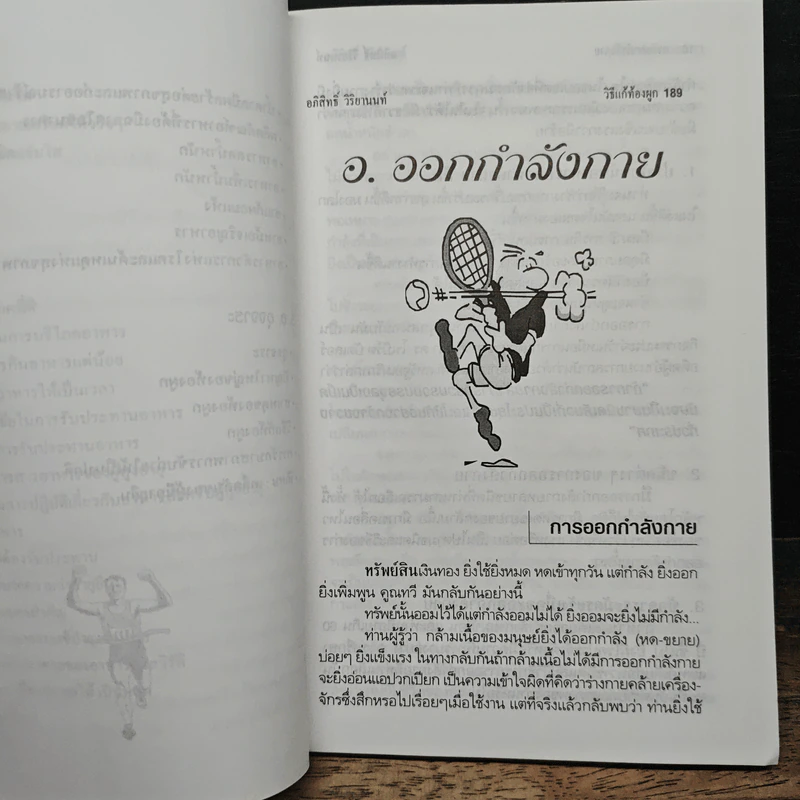 อภิสิทธิ์ วิริยานนท์
วิธีแก้ท้องผูก 189
อ. ออกกำลังกาย
การออกกำลังกาย
ทรัพย์สินเงินทอง ยิ่งใช้ยิ่งหมด หดเข้าทุกวัน แต่กำลัง ยิ่งออก
ยิ่งเพิ่มพูน คูณทวี มันกลับกันอย่างนี้
ทรัพย์นั้นออมไว้ได้แต่กำลังออมไม่ได้ ยิ่งออมจะยิ่งไม่มีกำลัง...
ท่านผู้รู้ว่า กล้ามเนื้อของมนุษย์ยิ่งได้ออกกำลัง (หด-ขยาย)
บ่อยๆ ยิ่งแข็งแรง ในทางกลับกันถ้ากล้ามเนื้อไม่ได้มีการออกกำลังกาย
จะยิ่งอ่อนแอปวกเปียก เป็นความเข้าใจผิดที่คิดว่าร่างกายคล้ายเครื่อง-
จักรซึ่งสึกหรอไปเรื่อยๆเมื่อใช้งาน แต่ที่จริงแล้วกลับพบว่า ท่านยิ่งใช้